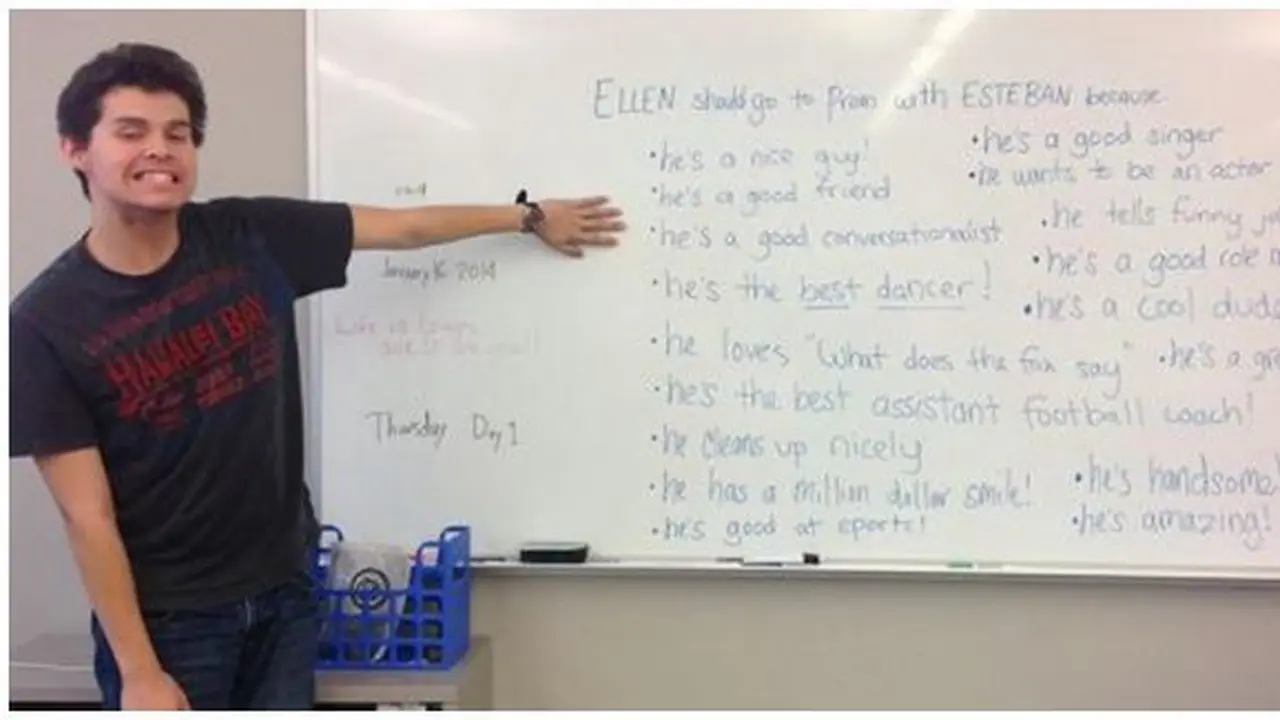 HANALEI BAY
January 16 2014
Life is
Thursday Day 1
ELLEN should go to Prom with ESTEBAN because
•he's a nice guy!
•he's a good friend
•he's a good conversationalist
•he's the best dancer!
•he loves "What does the fox say"
•he's the best assistant football coach!
•he cleans up nicely
•he has a million dollar smile!
•he's good at sports!
•he's a good singer
•he wants to be an actor
•he tells funny
•he's a good role
•he's a cool
•he's a
•he's handsome!
•he's amazing!